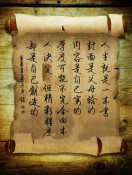 人生就是一本書
封面是父母给的
内容是自己寫的
厚度可能不完全由本
人决定但精彩程度
却是自己創造的